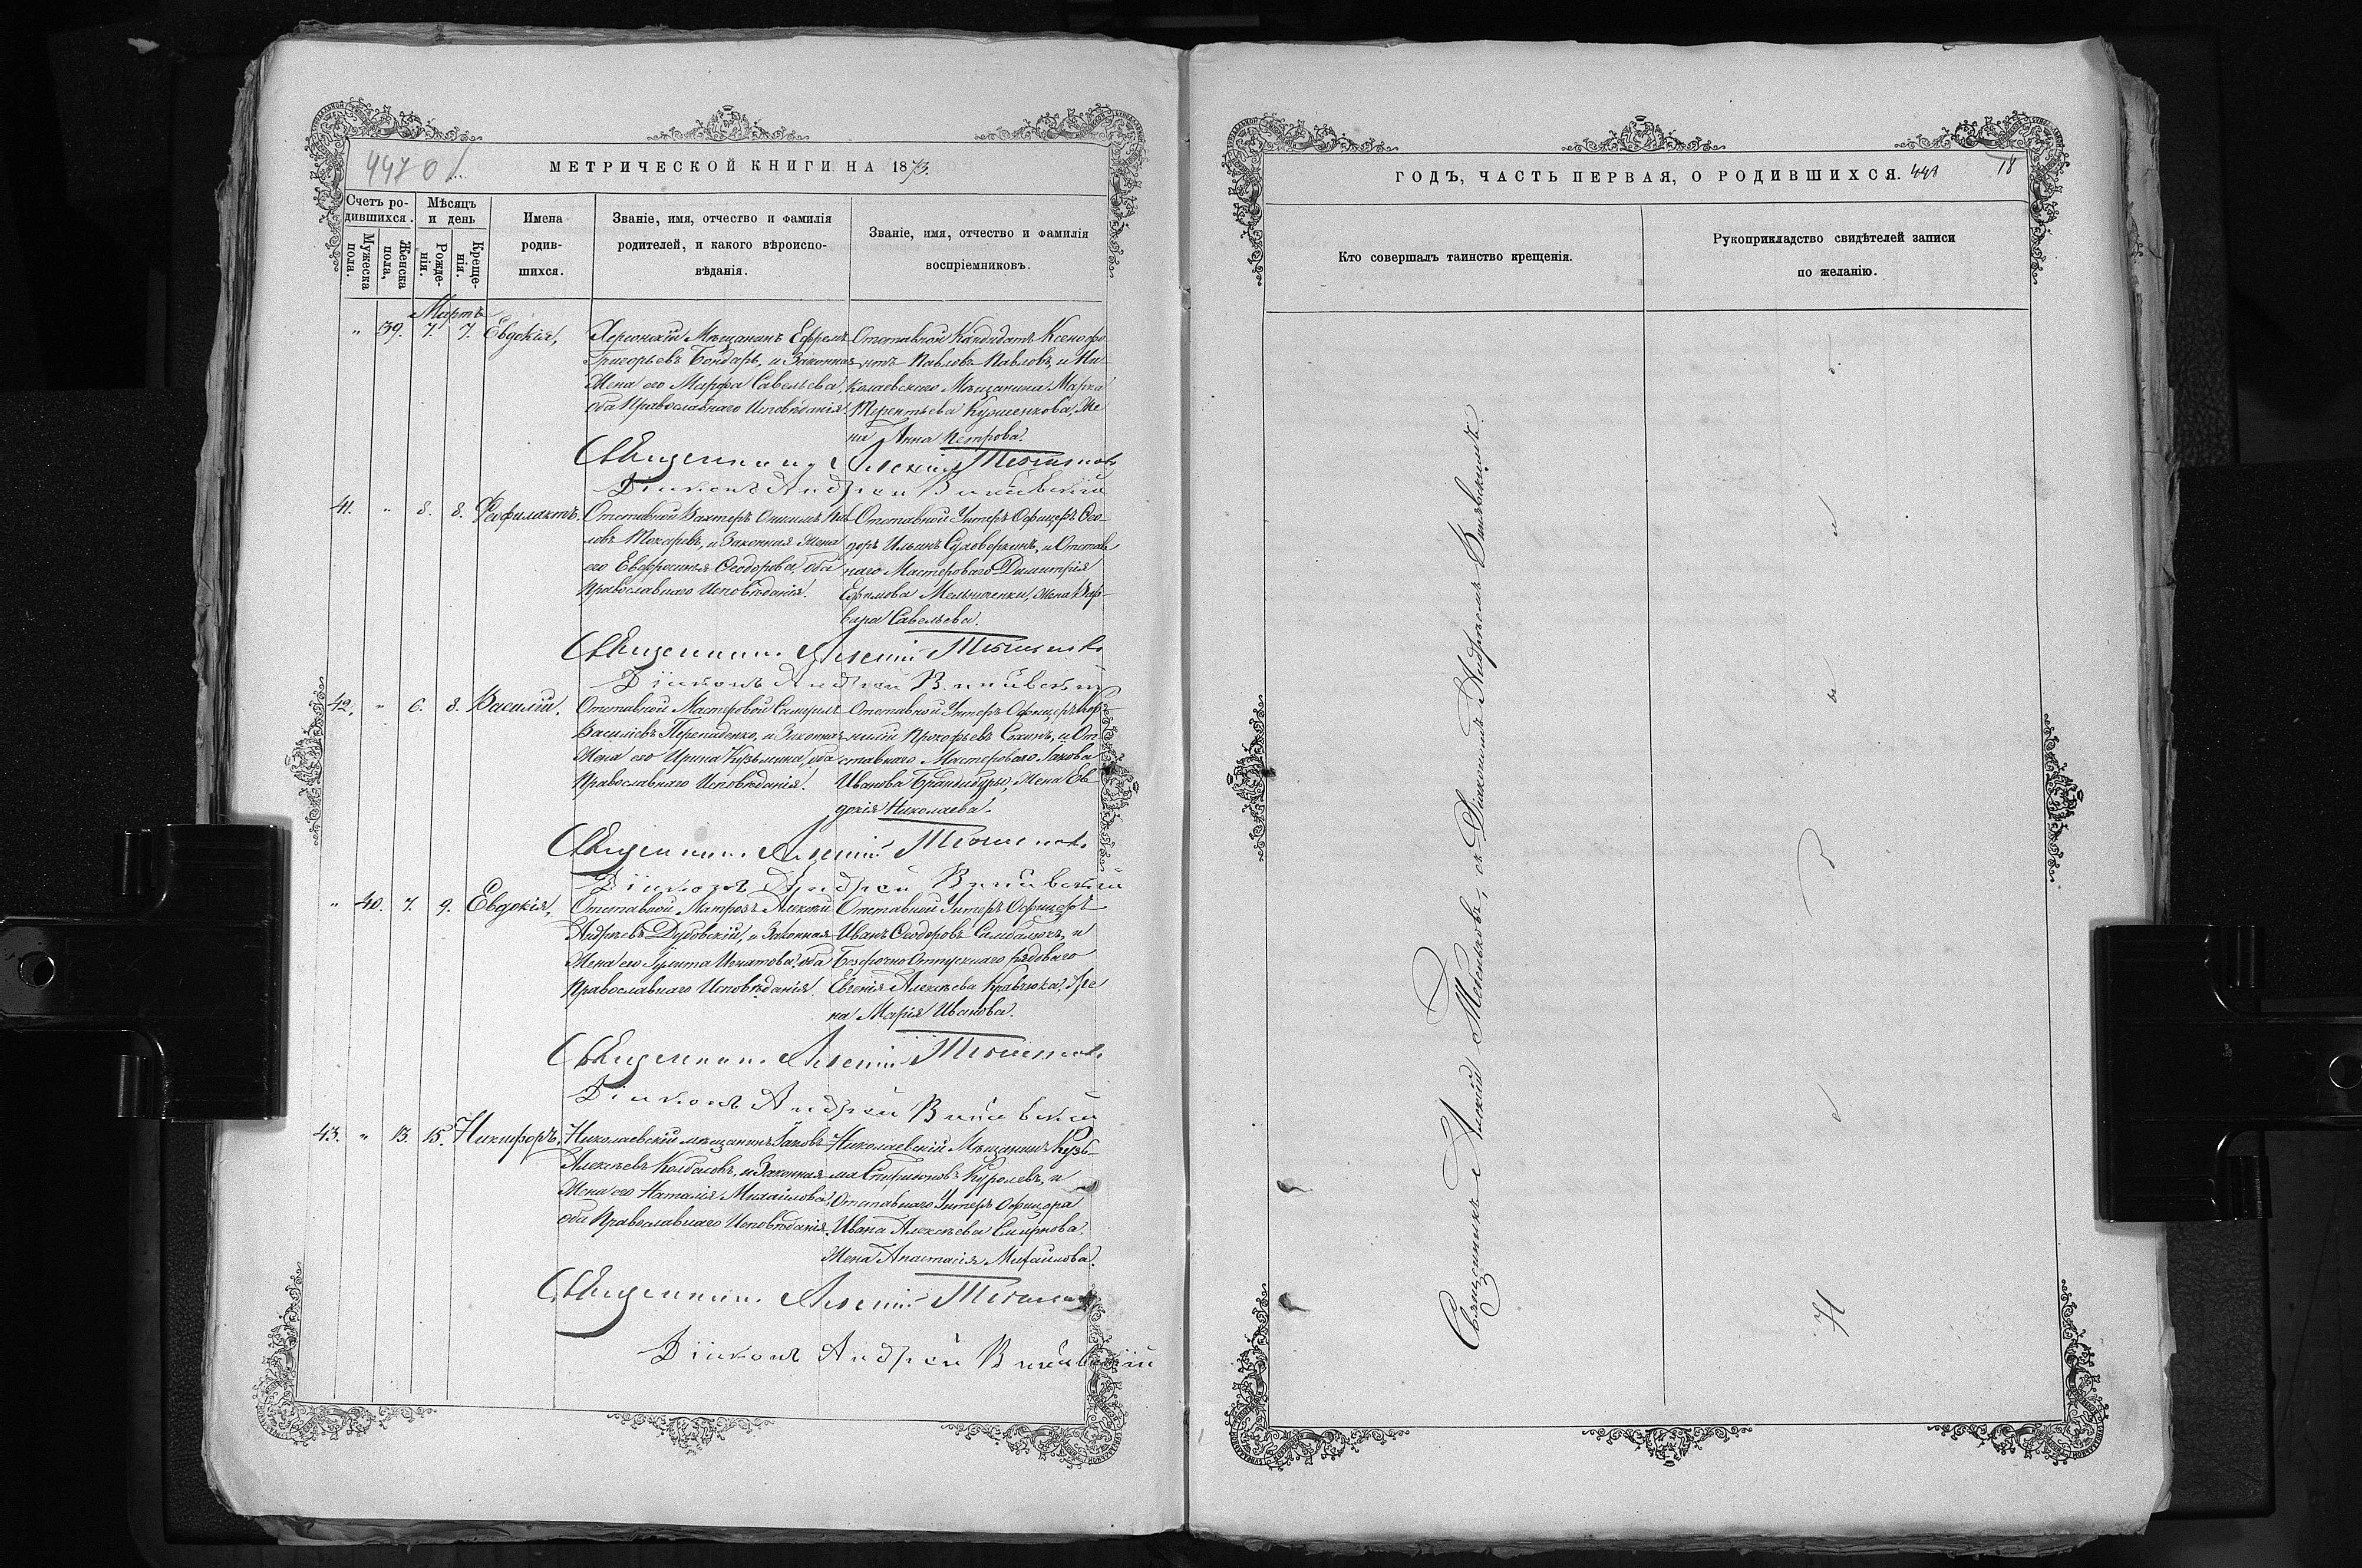 МЕТРИЧЕСКОЙ КНИГИ НА 1873.
Счетъ ро-
дившихся.
Мужеска пола.
Женска пола.
Мѣсяцъ
и день
Рожде-
нія.
Креще-
нія.
Имена
родив-
шихся.
Званіе, имя, отчество и фамилія
родителей, и какого вѣроиспо-
вѣданія.
Званіе, имя, отчество и фамилія
воспріемниковъ.
Мартъ
" 39. 7. 7. Евдокія,
Херсонскій Мѣщанинъ Ефремъ
Григорьевъ Бондарь, и Законная
Жена его Марфа Савельева,
оба Православнаго Исповѣданія.
Отставной Кандидатъ Ксенофо-
нтъ Павловъ Павловъ, и Ни-
колаевскаго Мѣщанина Марка
Терентьева Кузменкова, Же
на Анна Петрова.
Священникъ Алексій
Діаконъ Андрей
41. " 8. 8. Феофилактъ.
Отставной Вахтеръ Онисимъ Пав-
ловъ Токаревъ, и Законная Жена
его Евфросинія Ѳеодорова, оба
Православнаго Исповѣданія.
Отставной Унтеръ Офицеръ Ѳео-
доръ Ильинъ Суховеркинъ, и Отстав
наго Мастероваго Димитрія
Ефимова Мельниченки, Жена Вар-
вара Савельева.
Священникъ Алексій
Діаконъ Андрей
42. " 6. 8. Василій.
Отставной Мастеровой
Васильевъ Перепаденко, и Законная
Жена его Ирина Кузьмина, оба
Православнаго Исповѣданія.
Отставной Унтеръ Офицеръ Кор-
нилій Прокофьевъ Сохинъ, и От-
ставнаго Мастероваго Іакова
Иванова Жена Ев
докія Николаева.
Священникъ Алексій
Діаконъ Андрей
" 40. 7. 9. Евдокія,
Отставной Матрозъ Алексѣй
Андреевъ Дубовскій, и Законная
Жена его Іулита Игнатова, оба
Православнаго Исповѣданія.
Отставной Унтеръ Офицеръ
Иванъ Ѳеодоровъ и
Безсрочно Отпускнаго рядоваго
Евгенія Алексѣева Кравчюка, Же
на Марія Иванова.
Священникъ Алексій
Діаконъ Андрей
43. " 13. 15. Никифоръ,
Николаевскій мѣщанинъ Іаковъ
Алексѣевъ Колбасовъ, и Законная
Жена его Наталія Михайлова,
оба Православнаго Исповѣданія.
Николаевскій Мѣщанинъ Кузь-
ма Спиридоновъ Королевъ, и
Отставнаго Унтеръ Офицера
Ивана Алексѣева Смирнова,
Жена Анастасія Михайлова.
Священникъ Алексій
Діаконъ Андрей
ГОДЪ, ЧАСТЬ ПЕРВАЯ, О РОДИВШИХСЯ.
Кто совершалъ таинство крещенія.
Рукоприкладство свидѣтелей записи
по желанію.
Священникъ Алексій съ Діакономъ Андреемъ